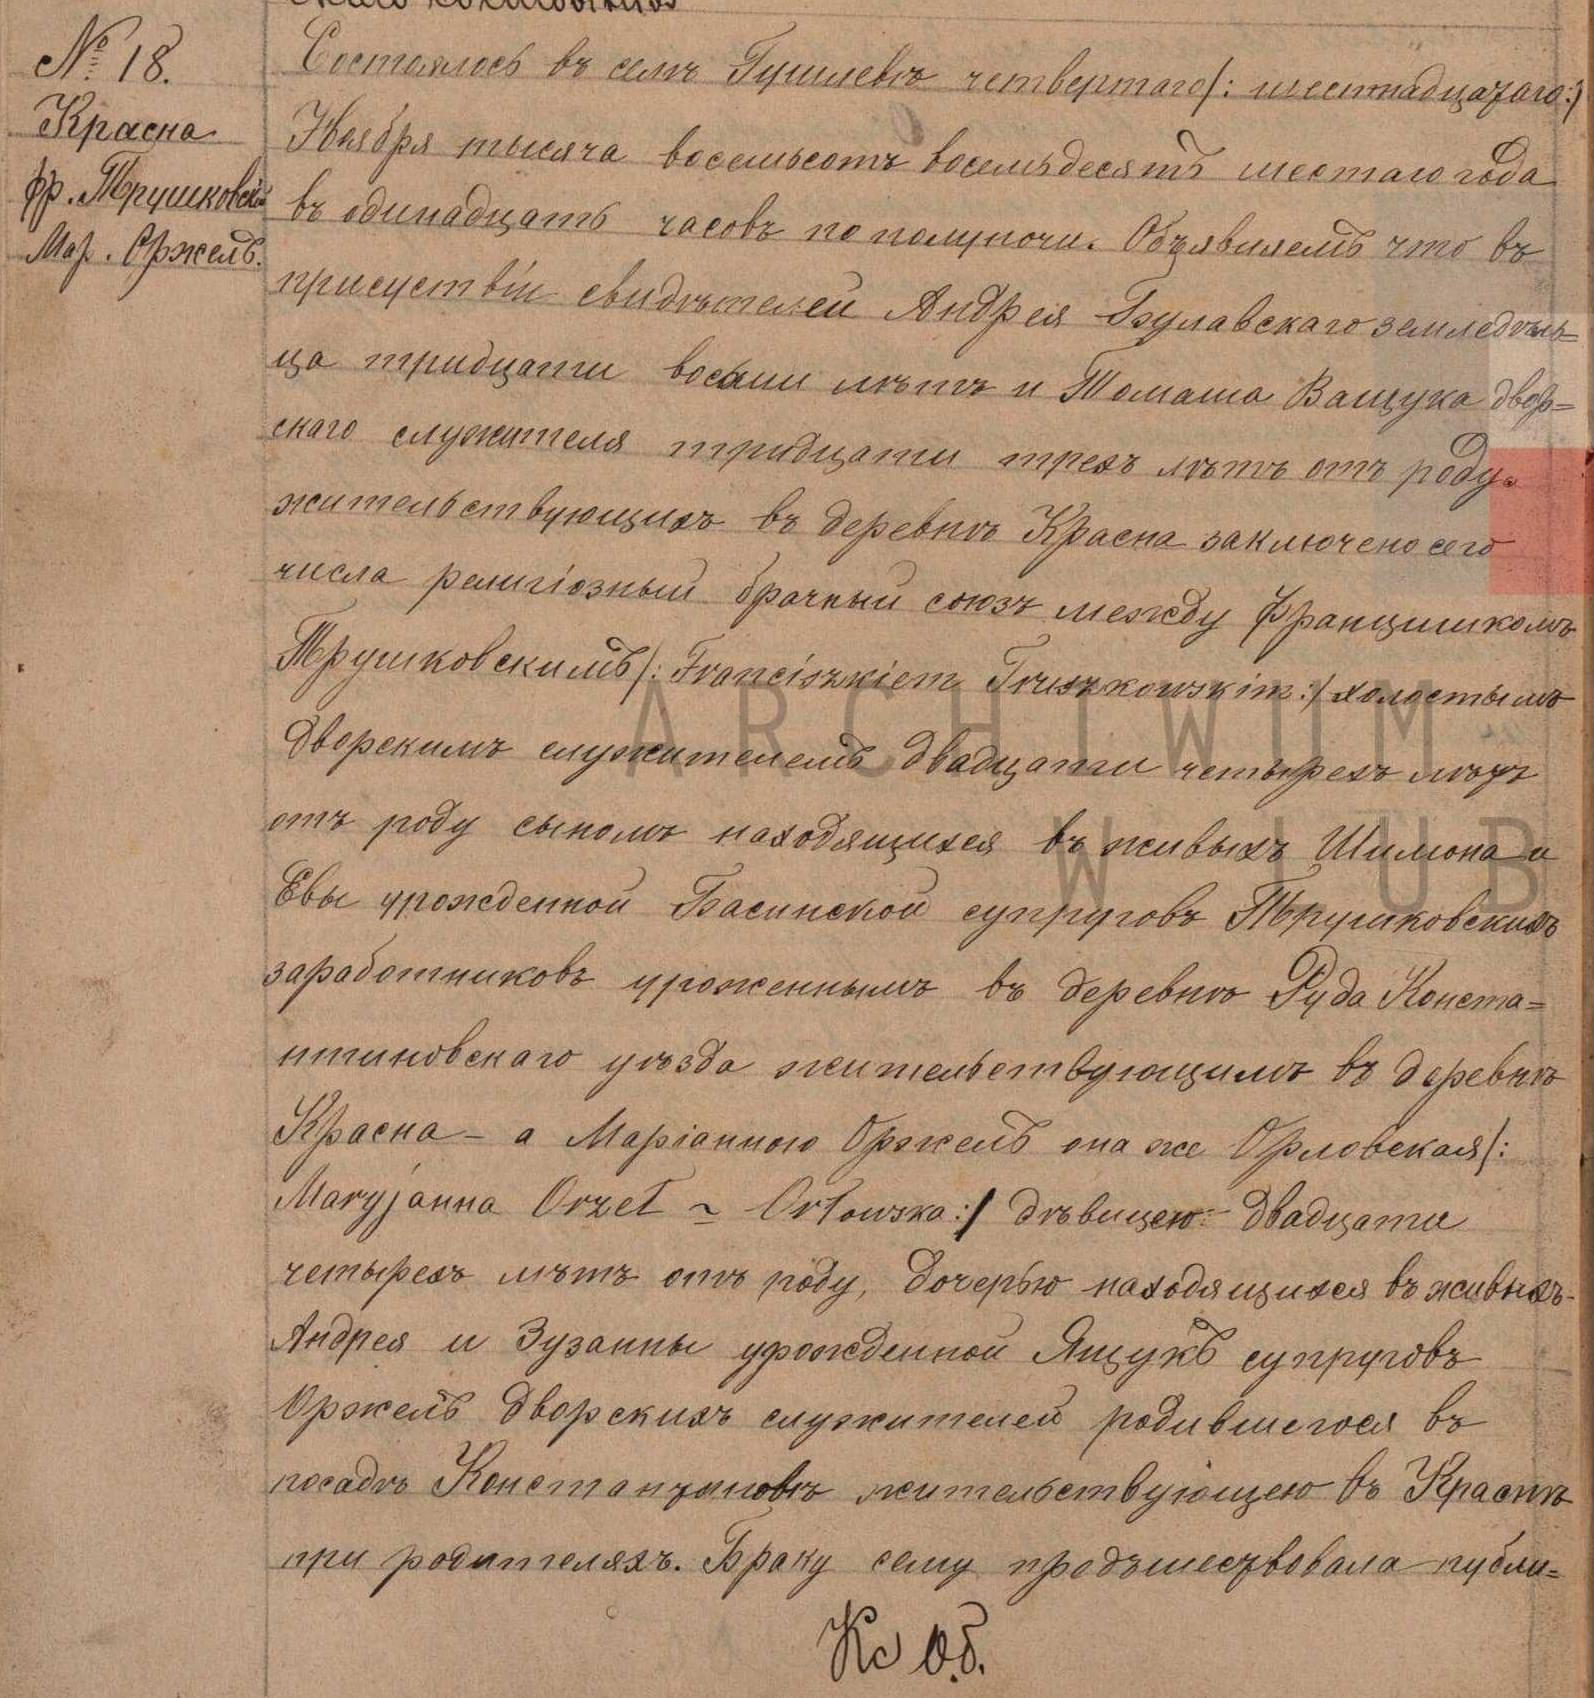 № 18.
Красна
Фр. Трушковскій
Мар. Оржелъ.
Состоялось въ селѣ Гушлевѣ четвертаго/: шестнадцатаго:/
Ноября тысяча восемьсотъ восемьдесятъ шестаго года
въ одинадцать часовъ по полуночи. Объявляемъ что въ
присуствіи свидѣтелей Андрея Булавскаго земледѣль=
ца тридцати восьми лѣтъ и Томаша Ващука двор=
скаго служителя тридцати трехъ лѣтъ отъ роду.
жительствующихъ въ деревнѣ Красна заключено сего
числа религіозный брачный союзъ между Францишкомъ
Трушковскимъ/: Franciszkiem Truszkowskim:/ холостымъ
дворскимъ служителемъ двадцати четырехъ лѣтъ
отъ роду сыномъ находящихся въ живыхъ Шимона и
Евы урожденной Басинской супруговъ Трушковскихъ
заработниковъ уроженнымъ въ деревнѣ Руда Конста=
нтиновскаго уѣзда жительствующимъ въ деревнѣ
Красна – а Маріанною Оржелъ она же Орловская/:
Maryjanna Orzeł ~ Orłowska:/ дѣвицею двадцати
четырехъ лѣтъ отъ роду, дочерью находящихся въ живыхъ
Андрея и Зузанны урожденной Ящукъ супруговъ
Оржелъ дворскихъ служителей родившегося въ
посадѣ Константиновѣ жительствующею въ Краснѣ
при родителяхъ. Браку сему предъшествовала публи=
ARCHIWUM
W LUB